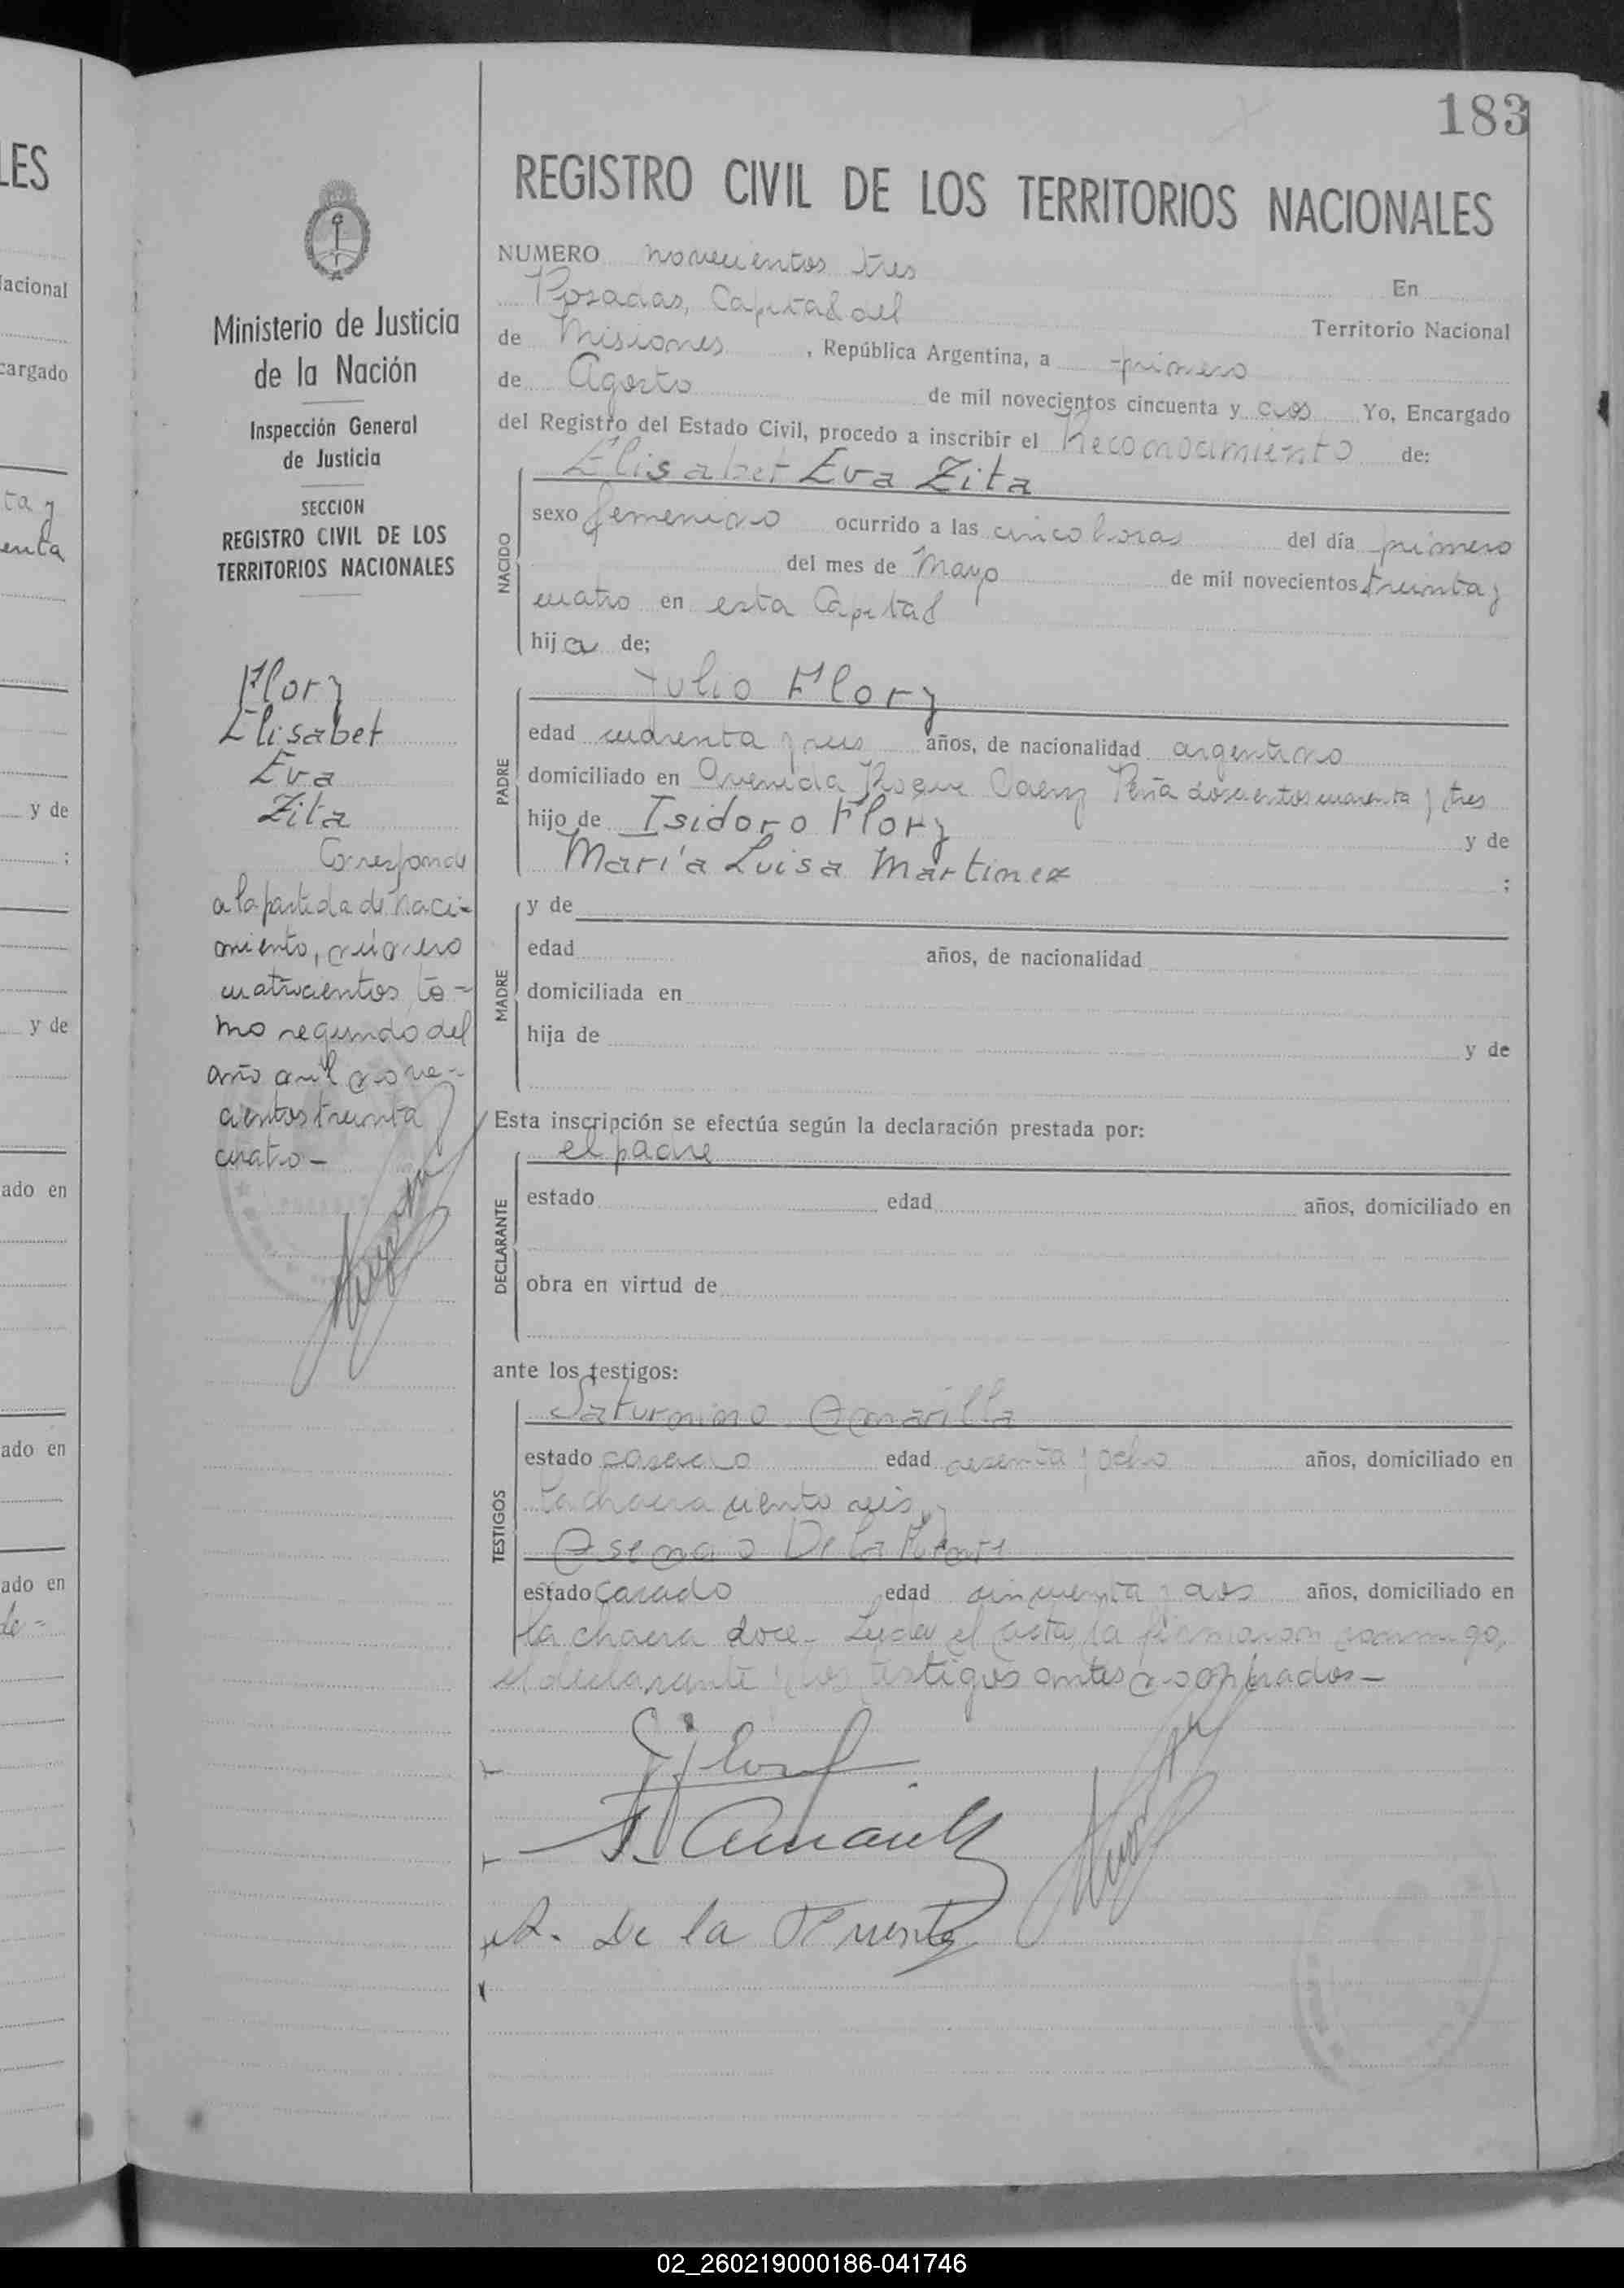 183
REGISTRO CIVIL DE LOS TERRITORIOS NACIONALES
NUMERO novecientos tres
En
Posadas, Capital del
Territorio Nacional
de Misiones , República Argentina, a primero
de Agosto de mil novecientos cincuenta y dos Yo, Encargado
del Registro del Estado Civil, procedo a inscribir el Reconocimiento de:
Elisabet Eva Zita
NACIDO
sexo femenino ocurrido a las cinco horas del día primero
del mes de Mayo de mil novecientos treinta y
cuatro en esta Capital
hija de;
Julio Flory
PADRE
edad cuarenta y seis años, de nacionalidad argentino
domiciliado en Avenida Roque Saenz Peña doscientos cuarenta y tres
hijo de Isidoro Flory y de
María Luisa Martinez ;
MADRE
y de
edad años, de nacionalidad
domiciliada en
hija de y de
Esta inscripción se efectúa según la declaración prestada por:
el padre
DECLARANTE
estado edad años, domiciliado en
obra en virtud de
ante los testigos:
Saturnino Amarilla
TESTIGOS
estado casado edad sesenta y ocho años, domiciliado en
la chacra ciento seis y
De la Fuente
estado casado edad cincuenta y dos años, domiciliado en
la chacra doce- Leida el acta, la firmaron conmigo,
el declarante y los testigos antes nombrados-
J Flory
S. Amarilla
A. De la Fuente
Ministerio de Justicia
de la Nación
Inspección General
de Justicia
SECCION
REGISTRO CIVIL DE LOS
TERRITORIOS NACIONALES
Flory
Elisabet
Eva
Zita
Corresponde
a la partida de naci-
miento, número
cuatrocientos to-
mo segundo del
año mil nove-
cientos treinta
cuatro-
LES
Nacional
cargado
ta y
enta
y de
;
y de
ado en
ado en
ado en
de-
02_260219000186-041746